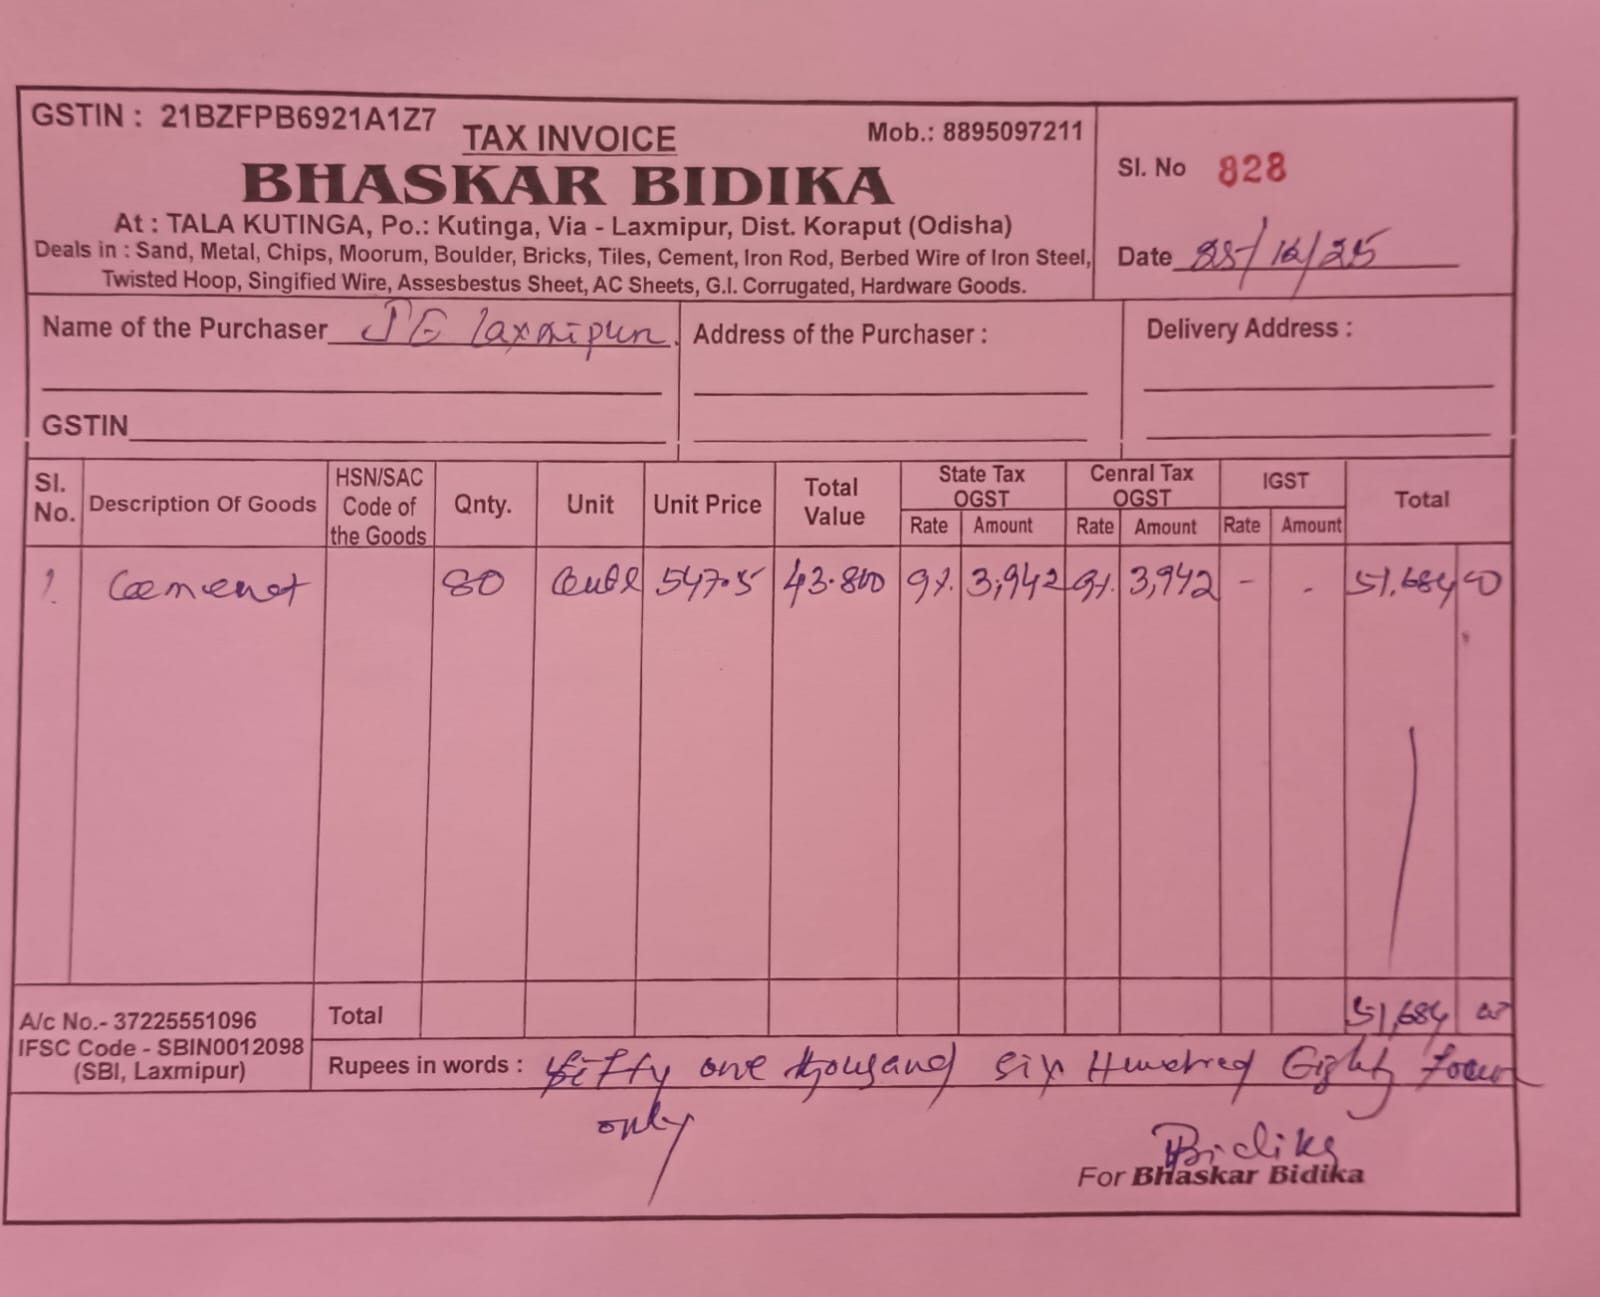 GSTIN : 21BZFPB6921A1Z7
TAX INVOICE
Mob.: 8895097211
BHASKAR BIDIKA
At : TALA KUTINGA, Po.: Kutinga, Via - Laxmipur, Dist. Koraput (Odisha)
Deals in : Sand, Metal, Chips, Moorum, Boulder, Bricks, Tiles, Cement, Iron Rod, Berbed Wire of Iron Steel,
Twisted Hoop, Singified Wire, Assesbestus Sheet, AC Sheets, G.I. Corrugated, Hardware Goods.
Sl. No 828
Date /12/25
Name of the Purchaser JE Laxmipur.
GSTIN
Address of the Purchaser :
Delivery Address :
Sl. No. Description Of Goods HSN/SAC Code of the Goods Qnty. Unit Unit Price Total Value State Tax OGST Rate Amount Cenral Tax OGST Rate Amount IGST Rate Amount Total
1. 80 547.5 43.800 9%. 3,942 9%. 3,942 - - 51,684 00
A/c No.- 37225551096
IFSC Code - SBIN0012098
(SBI, Laxmipur)
Total 51,684 00
Rupees in words : fifty one thousand six Hundred Eighty Four
only
Bidika
For Bhaskar Bidika